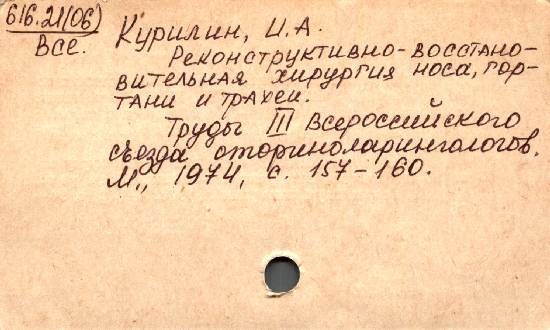 616.21(06)
Все.
Курилин, И.А.
Реконструктивно-восстано-
вительная хирургия носа, гор-
тани и трахеи.
Труды III Всероссийского
съезда оториноларингологов.
М., 1974, с. 157-160.